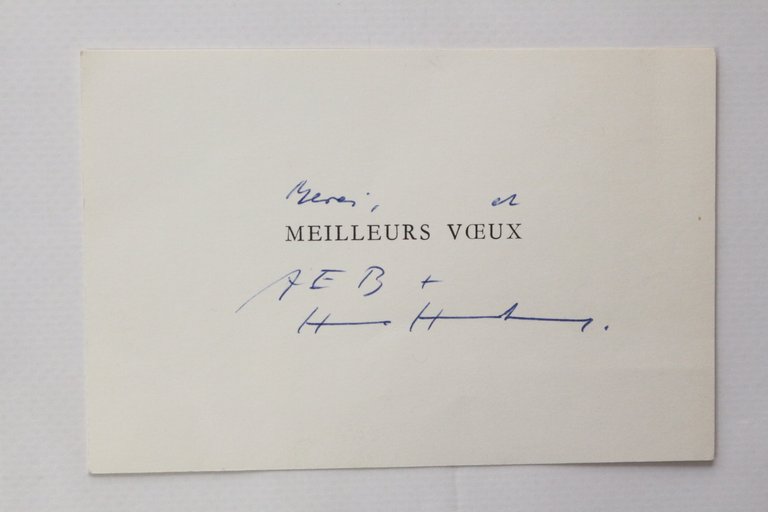 Merci, et
MEILLEURS VŒUX
AEB +